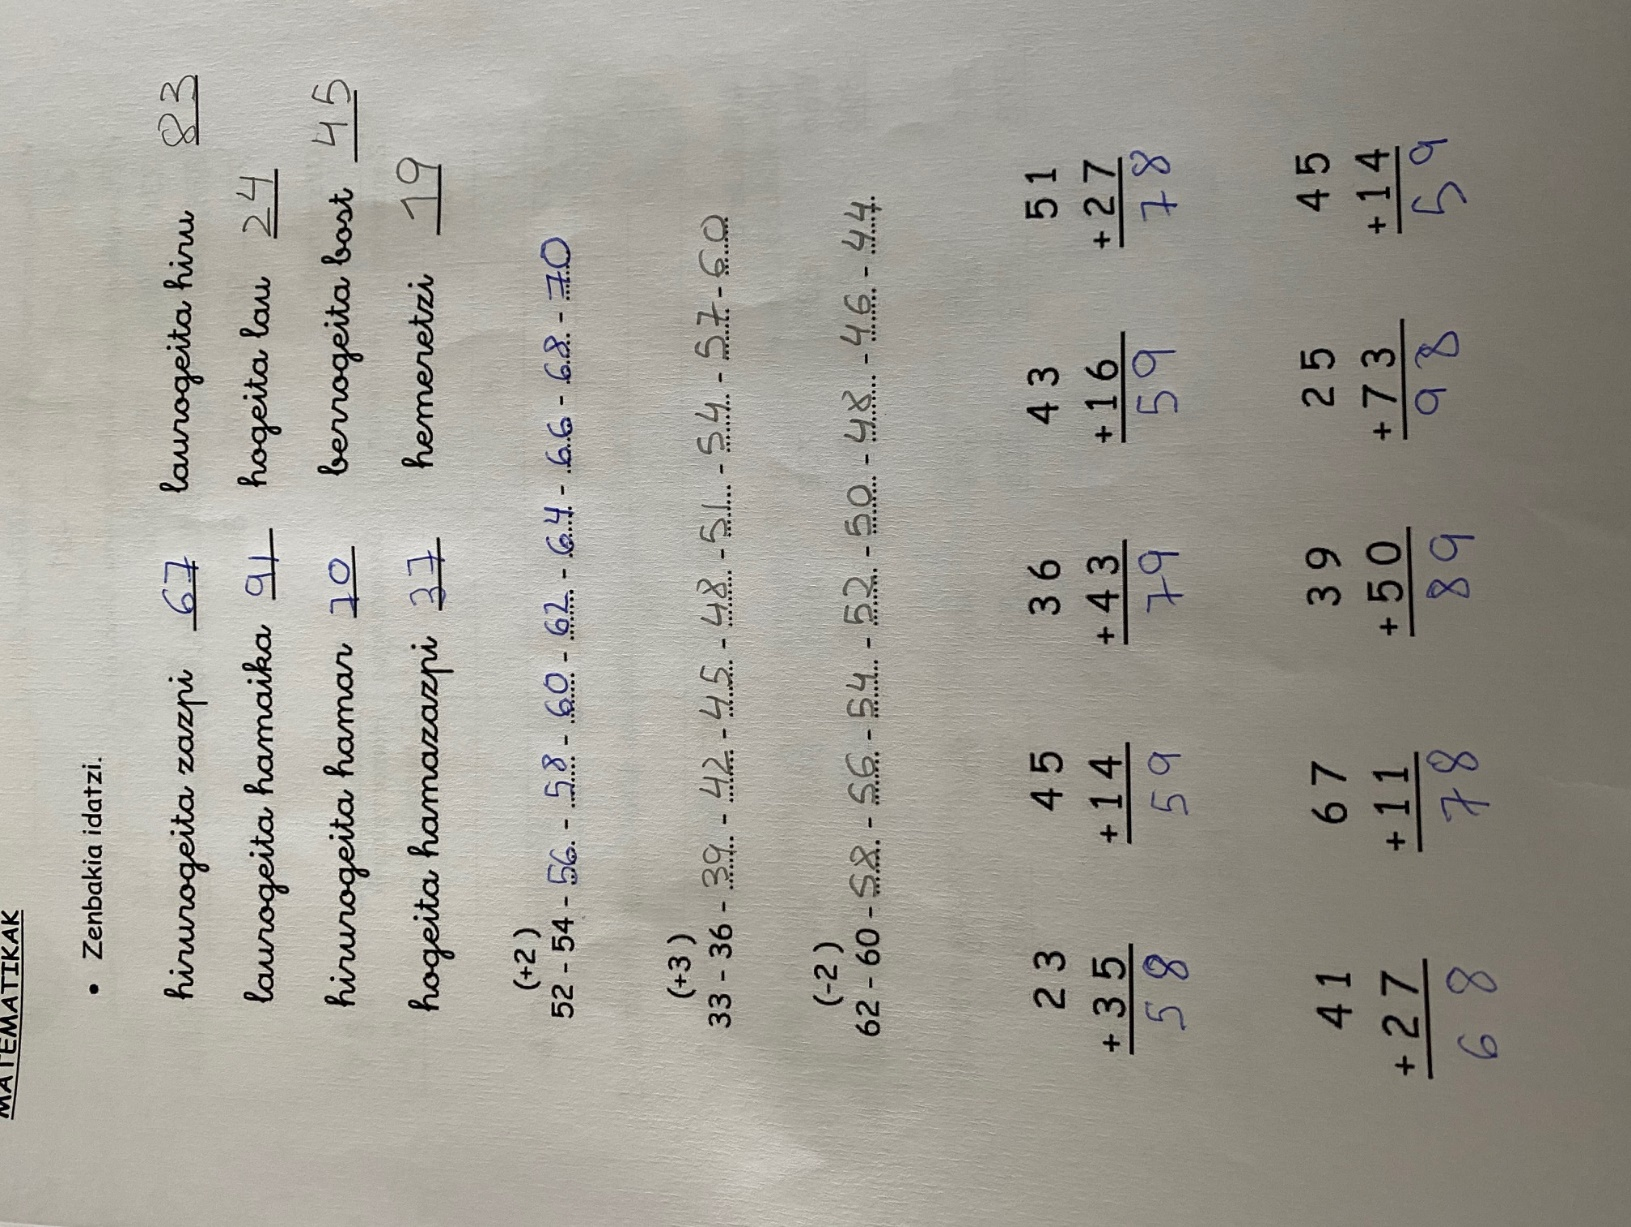 MATEMATIKAK
• Zenbakia idatzi.
hirurogeita zazpi 67 laurogeita hiru 83
laurogeita hamaika 91 hogeita lau 24
hirurogeita hamar 70 berrogeita bost 45
hogeita hamazazpi 37 hemeretzi 19
(+2)
52 - 54 - 56 - 58 - 60 - 62 - 64 - 66 - 68 - 70
(+3)
33 - 36 - 39 - 42 - 45 - 48 - 51 - 54 - 57 - 60
(-2)
62 - 60 - 58 - 56 - 54 - 52 - 50 - 48 - 46 - 44
23 45 36 43 51
+35 +14 +43 +16 +27
58 59 79 59 78
41 67 39 25 45
+27 +11 +50 +73 +14
68 78 89 98 59